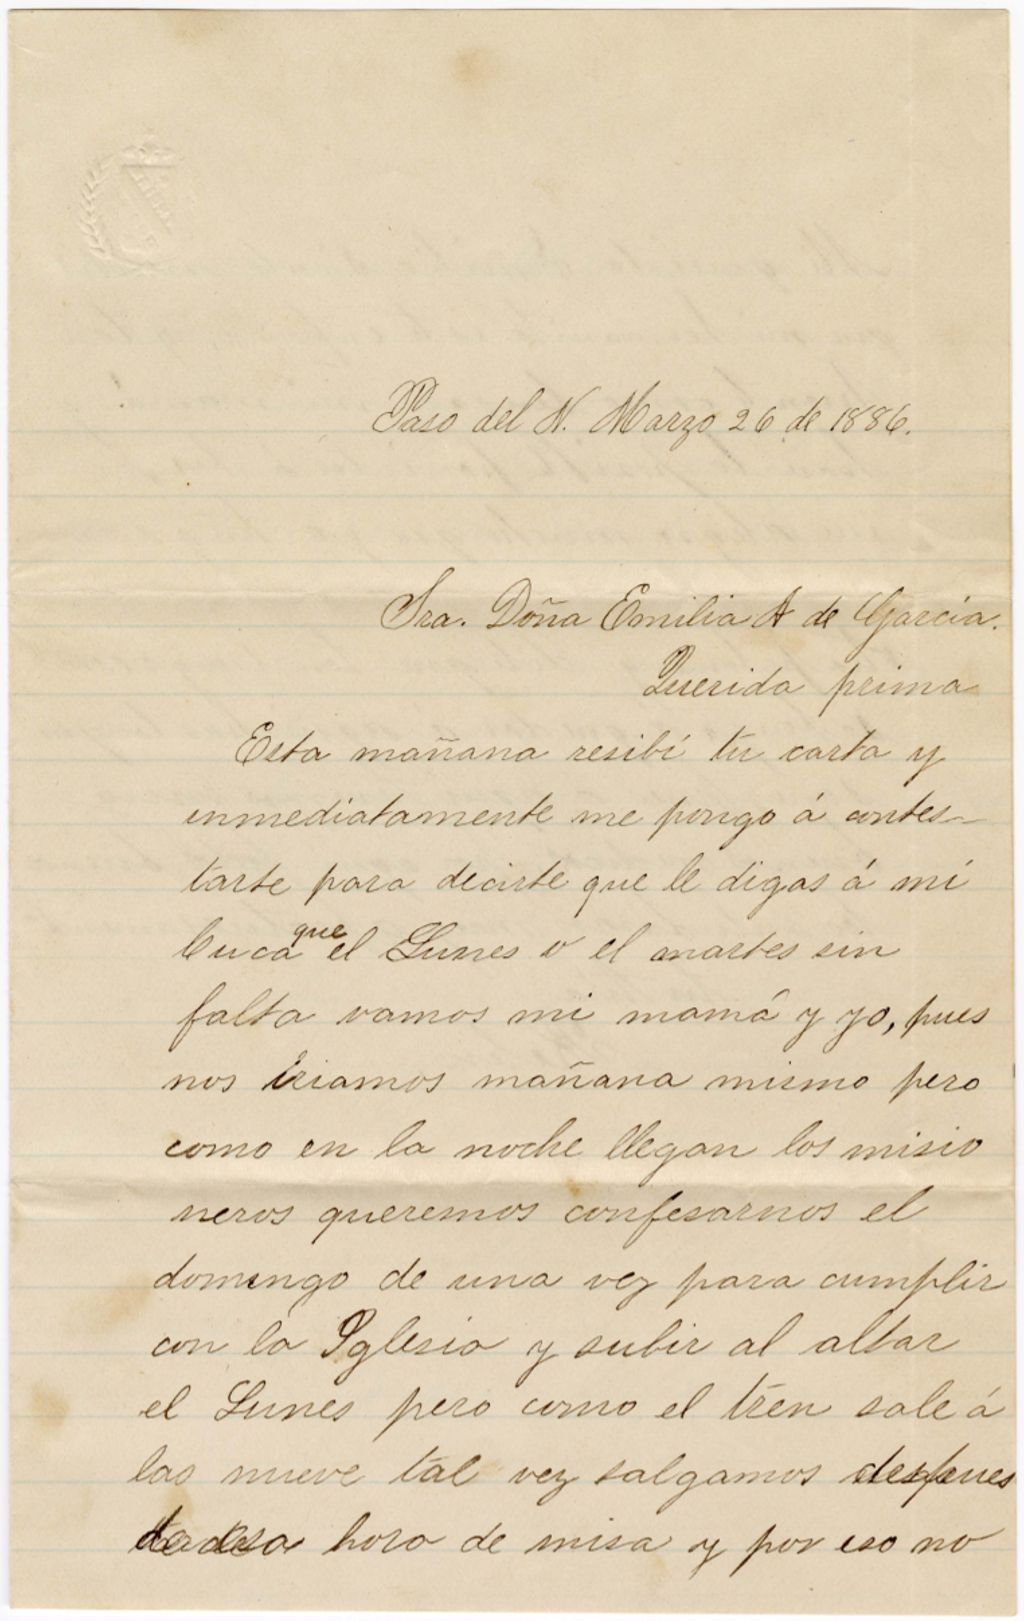 Paso del N. Marzo 26 de 1886.
Sra. Doña Emilia A de Garcia.
Querida prima
Esta mañana resibí tu carta y
inmediatamente me pongo á contes-
tarte para decirte que le digas á mi
Cuca que el Lunes o el martes sin
falta vamos mi mamá y yo, pues
nos iriamos mañana mismo pero
como en la noche llegan los misio
neros queremos confesarnos el
domingo de una vez para cumplir
con la Iglesia y subir al altar
el Lunes pero como el tren sale á
las nueve tal vez salgamos despues
hora de misa y por eso no